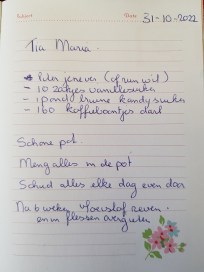 Date 31-10-2022
Tia Maria.
1 liter jenever (of rum wit)
- 10 zakjes vanillesuiker
- 1 pond bruine kandij suiker
- 160 koffieboontjes
Schone pot.
Meng alles in de pot
Schud alles elke dag even door
Na 6 weken zeven
en in flessen